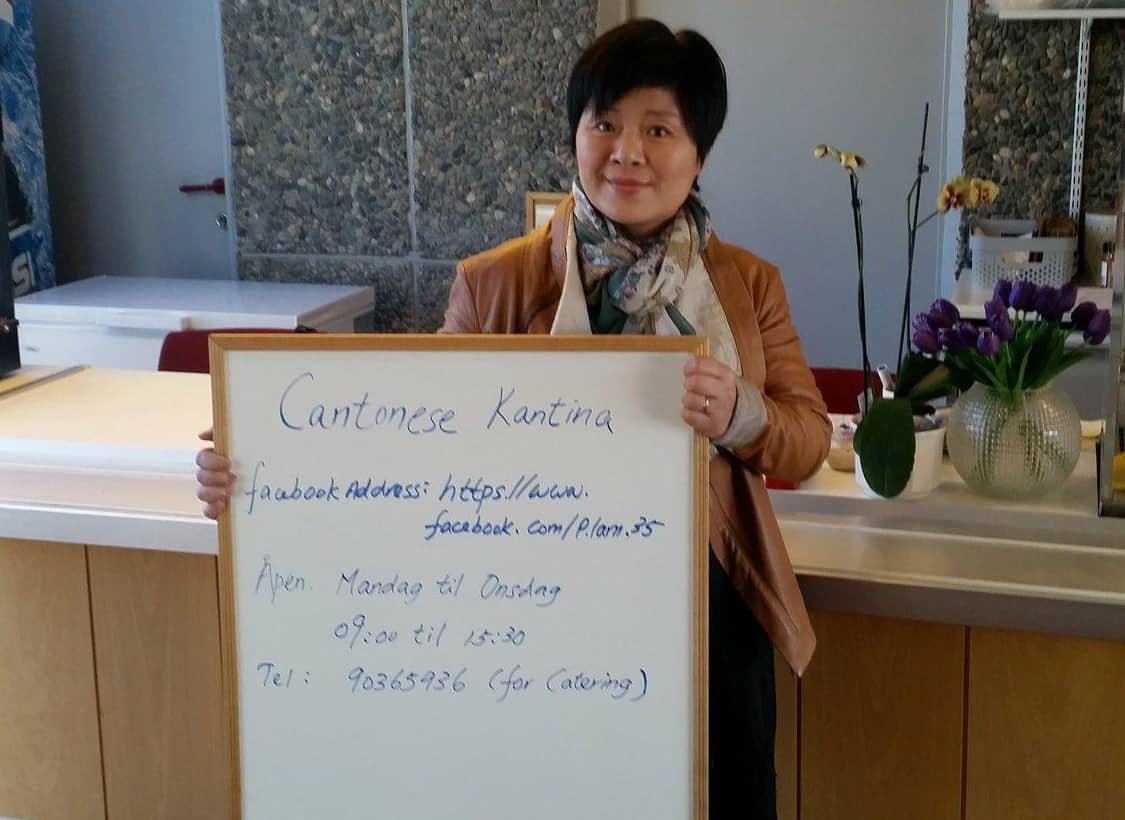 Cantonese Kantina
facebook Address: https://www.
facebook.com/P.lam.35
Åpen. Mandag til Onsdag
09:00 til 15:30
Tel: 90365936 (for Catering)
SI